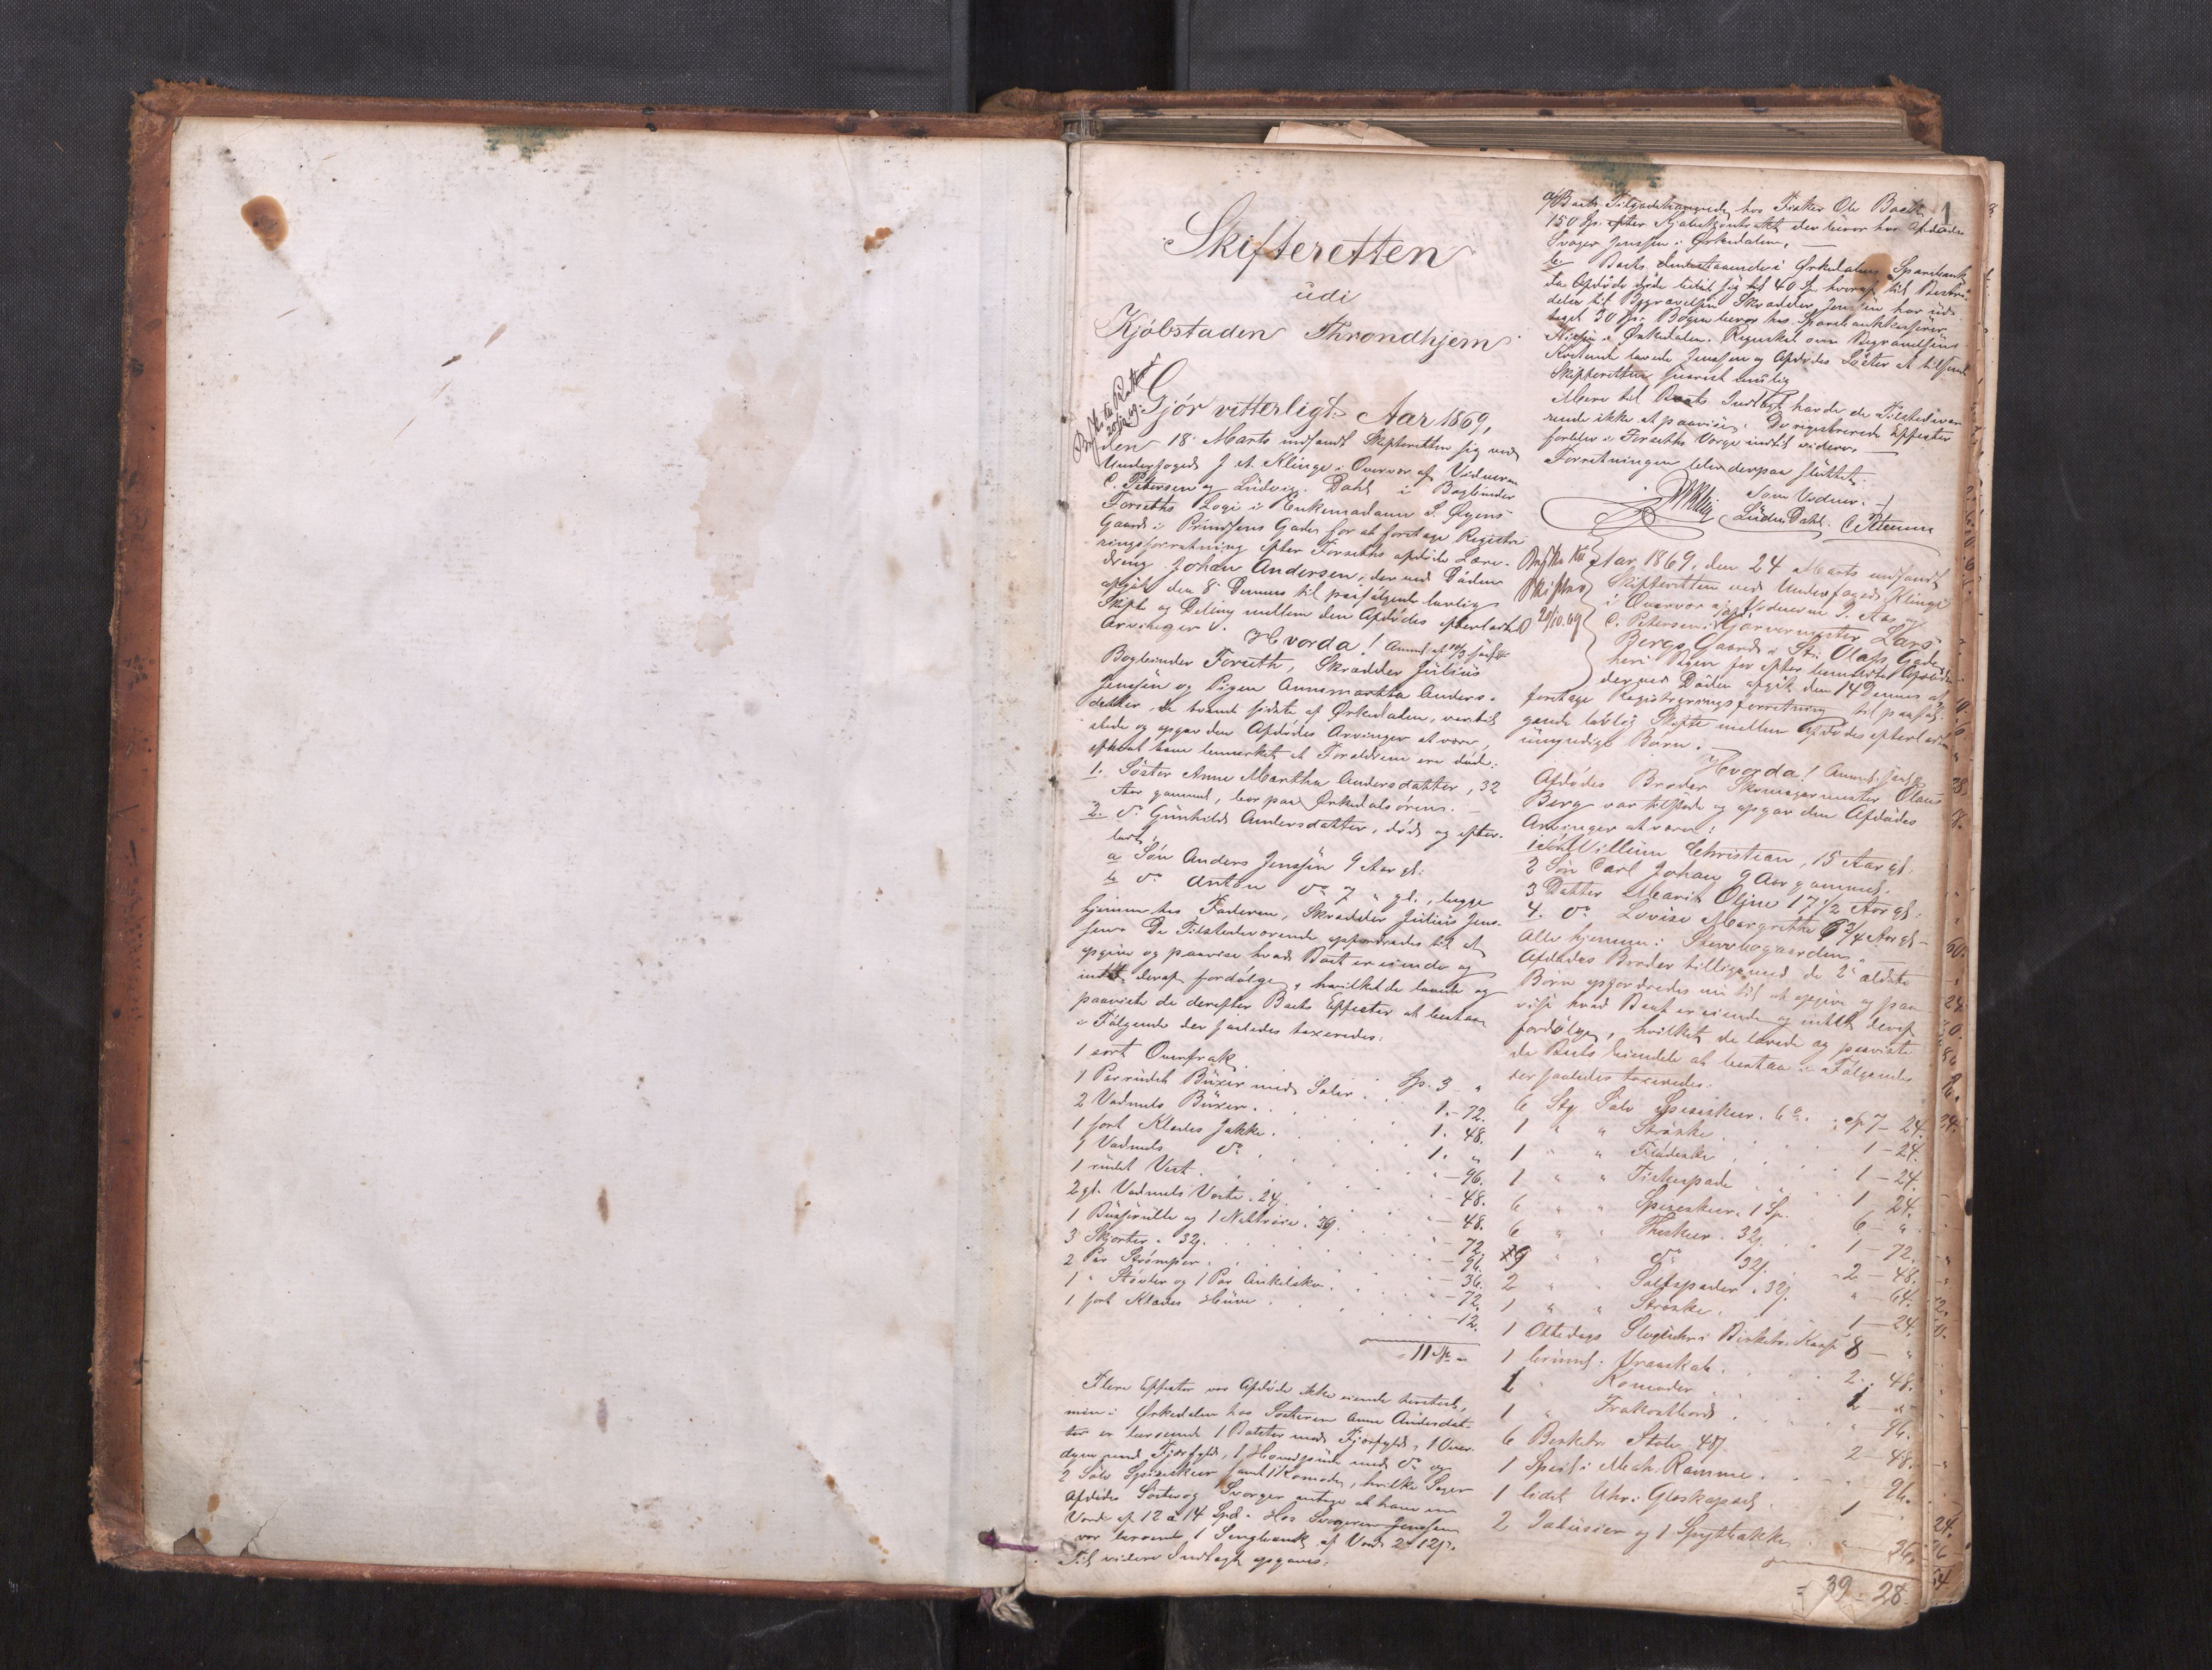 1
Skifteretten
udi
Kjøbstaden Throndhjem
Gjør vitterligt: Aar 1869,
den 18 Marts indfandt Skifteretten sig ved
Underfoged J A. Klinge i Overvær af Vidnerne
C. Petersen og Ludvig Dahl i Bogbinder
Forseths Logi i Enkemadame S. Øyens
Gaard i Prindsens Gade for at foretage Registre
ringsforretning efter Forseths afdøde Lære-
dreng Johan Andersen, der ved Døden
afgik den 8 Dennes til paafølgende lovlig
Skifte og Deling mellem den Afdødes efterladte
Arvinger.
Hvorda!
Bogbinder Forseth, Skrædder Julius
Jenssen og Pigen Annemartha Anders-
datter, de tvende sidste af Ørkedalen, vare til-
stede og opgav den Afdødes Arvinger at være,
efterat have bemærket at Forældrene ere døde:
1. Søster Anne Martha Andersdatter, 32
Aar gammel, bor paa Ørkedalsøren.
2. do Gunhild Andersdatter, død og efter-
ladt
a Søn Anders Jenssen 9 Aar gl.
b do Anton do 7 " gl., begge
hjemme hos Faderen, Skrædder Julius Jens-
sen. De Tilstedeværende opfordredes til at
opgive og paavise hvad Boet er eiende og
intet deraf fordølge, hvilket de lovede og
paaviste de derefter Boets Effecter at bestaa
i Følgende der saaledes taxeredes:
1 sort Overfrak
1 Par rudet Buxer med Seler . . Sp. 3 "
2 Vadmels Buxer . . 1. - 72.
1 sort Klædes Jakke . . 1. 48.
1 Vadmels do . . 1. "
1 rudet Vest . . " - 96.
2 gl. Vadmels Veste . 24 . . " - 48.
1 og 1 . . " - 48.
3 Skjorter à 32 . . " - 72.
2 Par Strømper . . " - 96.
1 " Støvler og 1 Par Ankelsko . . " - 36.
1 sort Klædes Hue . . " - 72.
" - 12.
11
Flere Effecter var Afdøde ikke eiende herstede,
men i Ørkedalen hos Søsteren Anne Andersdat-
ter er beroende 1 Bolster med Fjærfyld, 1 Over-
dyne med Fjærfyld, 1 Hovedpude med do og
2 Sølv Spiseskeer samt 1 Komode, hvilke Sager
Afdødes Søster og Svoger antoge at have en
Værdi af 12 a 14 Spd. Hos Svogeren Jenssen
var beroende 1 Sengbænk af Værdi 2
Til videre Indtægt opgaves:
a/ Boets Tilgodehavende hos Fisker Ole
150 Sp. efter der beror hos Afdødes
Svoger Jenssen i Ørkedalen.
b/ Boets i Ørkedalens Sparebank
da Afdøde døde beløb sig til 40 Sp. hvoraf til Bestri-
delse til Begravelsen Skrædder Jenssen har ud-
taget 30 Sp. Bogen beror hos Sparebankkasserer
i Ørkedalen. Regnskab over Begravelsens
Kostende lovede Jenssen og Afdødes Søster at tilsende
Skifteretten snarest mulig
Mere til Boets Indtægt havde de Tilstedevæ-
rende ikke at paavise. De registrerede Effecter
forblev i Forseths Værge indtil videre.
Forretningen blev derpaa sluttet.
Som Vidner.
Ludv. Dahl. C Petersen
20/10.69
Aar 1869, den 24 Marts indfandt
Skifteretten ved Underfoged Klinge
i Overvær af Vidnerne P. Aas og
C. Petersen i Garvermester Lars
Bergs Gaard i St. Olafs Gade
heri Byen for efter bemeldte Afdøde
der ved Døden afgik den 14 Dennes at
foretage Registreringsforretning til paaføl-
gende lovlig Skifte mellem Afdødes efterladte
umyndige Børn.
Hvorda!
Afdødes Broder Skomagermester Olaus
Berg var tilstede og opgav den Afdødes
Arvinger at være:
1 Søn Villum Christian, 15 Aar gl.
2 Søn Carl Johan 9 Aar gammel.
3 Datter Marit Oline 17 1/2 Aar gl.
4. do Lovise Margrethe 6 3/4 Aar gl.
Alle hjemme i Stervbogaarden.
Afdødes Broder tilligemed de 2 ældste
Børn opfordredes nu til at opgive og paa-
vise hvad Boet er eiende og intet deraf
fordølge, hvilket de lovede og paaviste
de Boets Eiendele at bestaa i Følgende
der saaledes taxeredes:
6 Stk. Sølv Spiseskeer . . Sp 7 - 24.
1 " " Strøske . . 1 - 24.
1 " " Flødeske . . 1 - 24.
1 " " Fiskespade . . 1 24.
6 " " Spiseskeer à 1 Sp. . 6 - "
6 " " Theskeer . 32 . . 1 - 72.
9 " " do 32 . . 2 - 48.
2 " " Saltspader . 32 . . " - 64.
1 " " Strøske . . 1 - 24.
1 Ottedags Slaguhr i Birketræ Kasse 8 - "
1 brunm. Vraaskab . . 2 - 48.
1 " Komoder . . 2 - "
1 " Frokostbord . . " 96.
6 Birketr. Stole . 48 . . 2 - 48.
1 Speil i Mah. Ramme . . " 96.
1 lidet Uhr i Glaskapsel . . 1 "
2 Jalusier og 1 Spyttbakke . . " 36.
= 39 - 28.